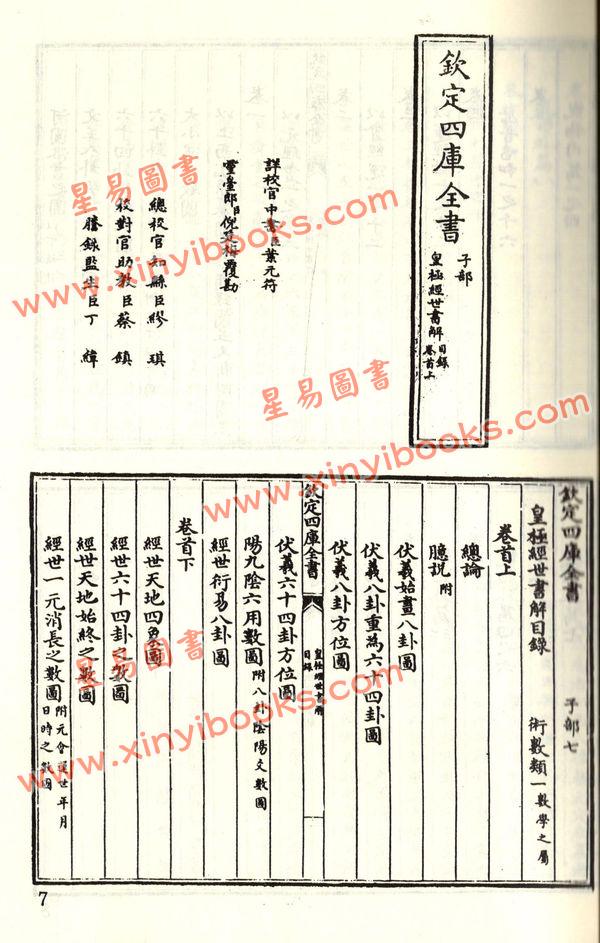 欽定四庫全書
子部
皇極經世書解
目錄
卷首上
詳校官中書臣葉元符
靈臺郎臣倪廷梅覆勘
總校官知縣臣繆琪
校對官助教臣蔡鎮
謄錄監生臣丁緯
欽定四庫全書 子部七
皇極經世書解目錄 術數類一數學之屬
卷首上
總論
臆説附
伏羲始畫八卦圖
伏羲八卦重為六十四卦圖
伏羲八卦方位圖
欽定四庫全書
皇極經世書解
目錄
伏羲六十四卦方位圖
陽九陰六用數圖附八卦陰陽爻數圖
經世衍易八卦圖
卷首下
經世天地四象圖
經世六十四卦之數圖
經世天地始終之數圖
經世一元消長之數圖附元會運世年月日時之數圖
7
星易圖書
www.xinyibooks.com
星易圖書
www.xinyibooks.com
星易圖書
www.xinyibooks.com